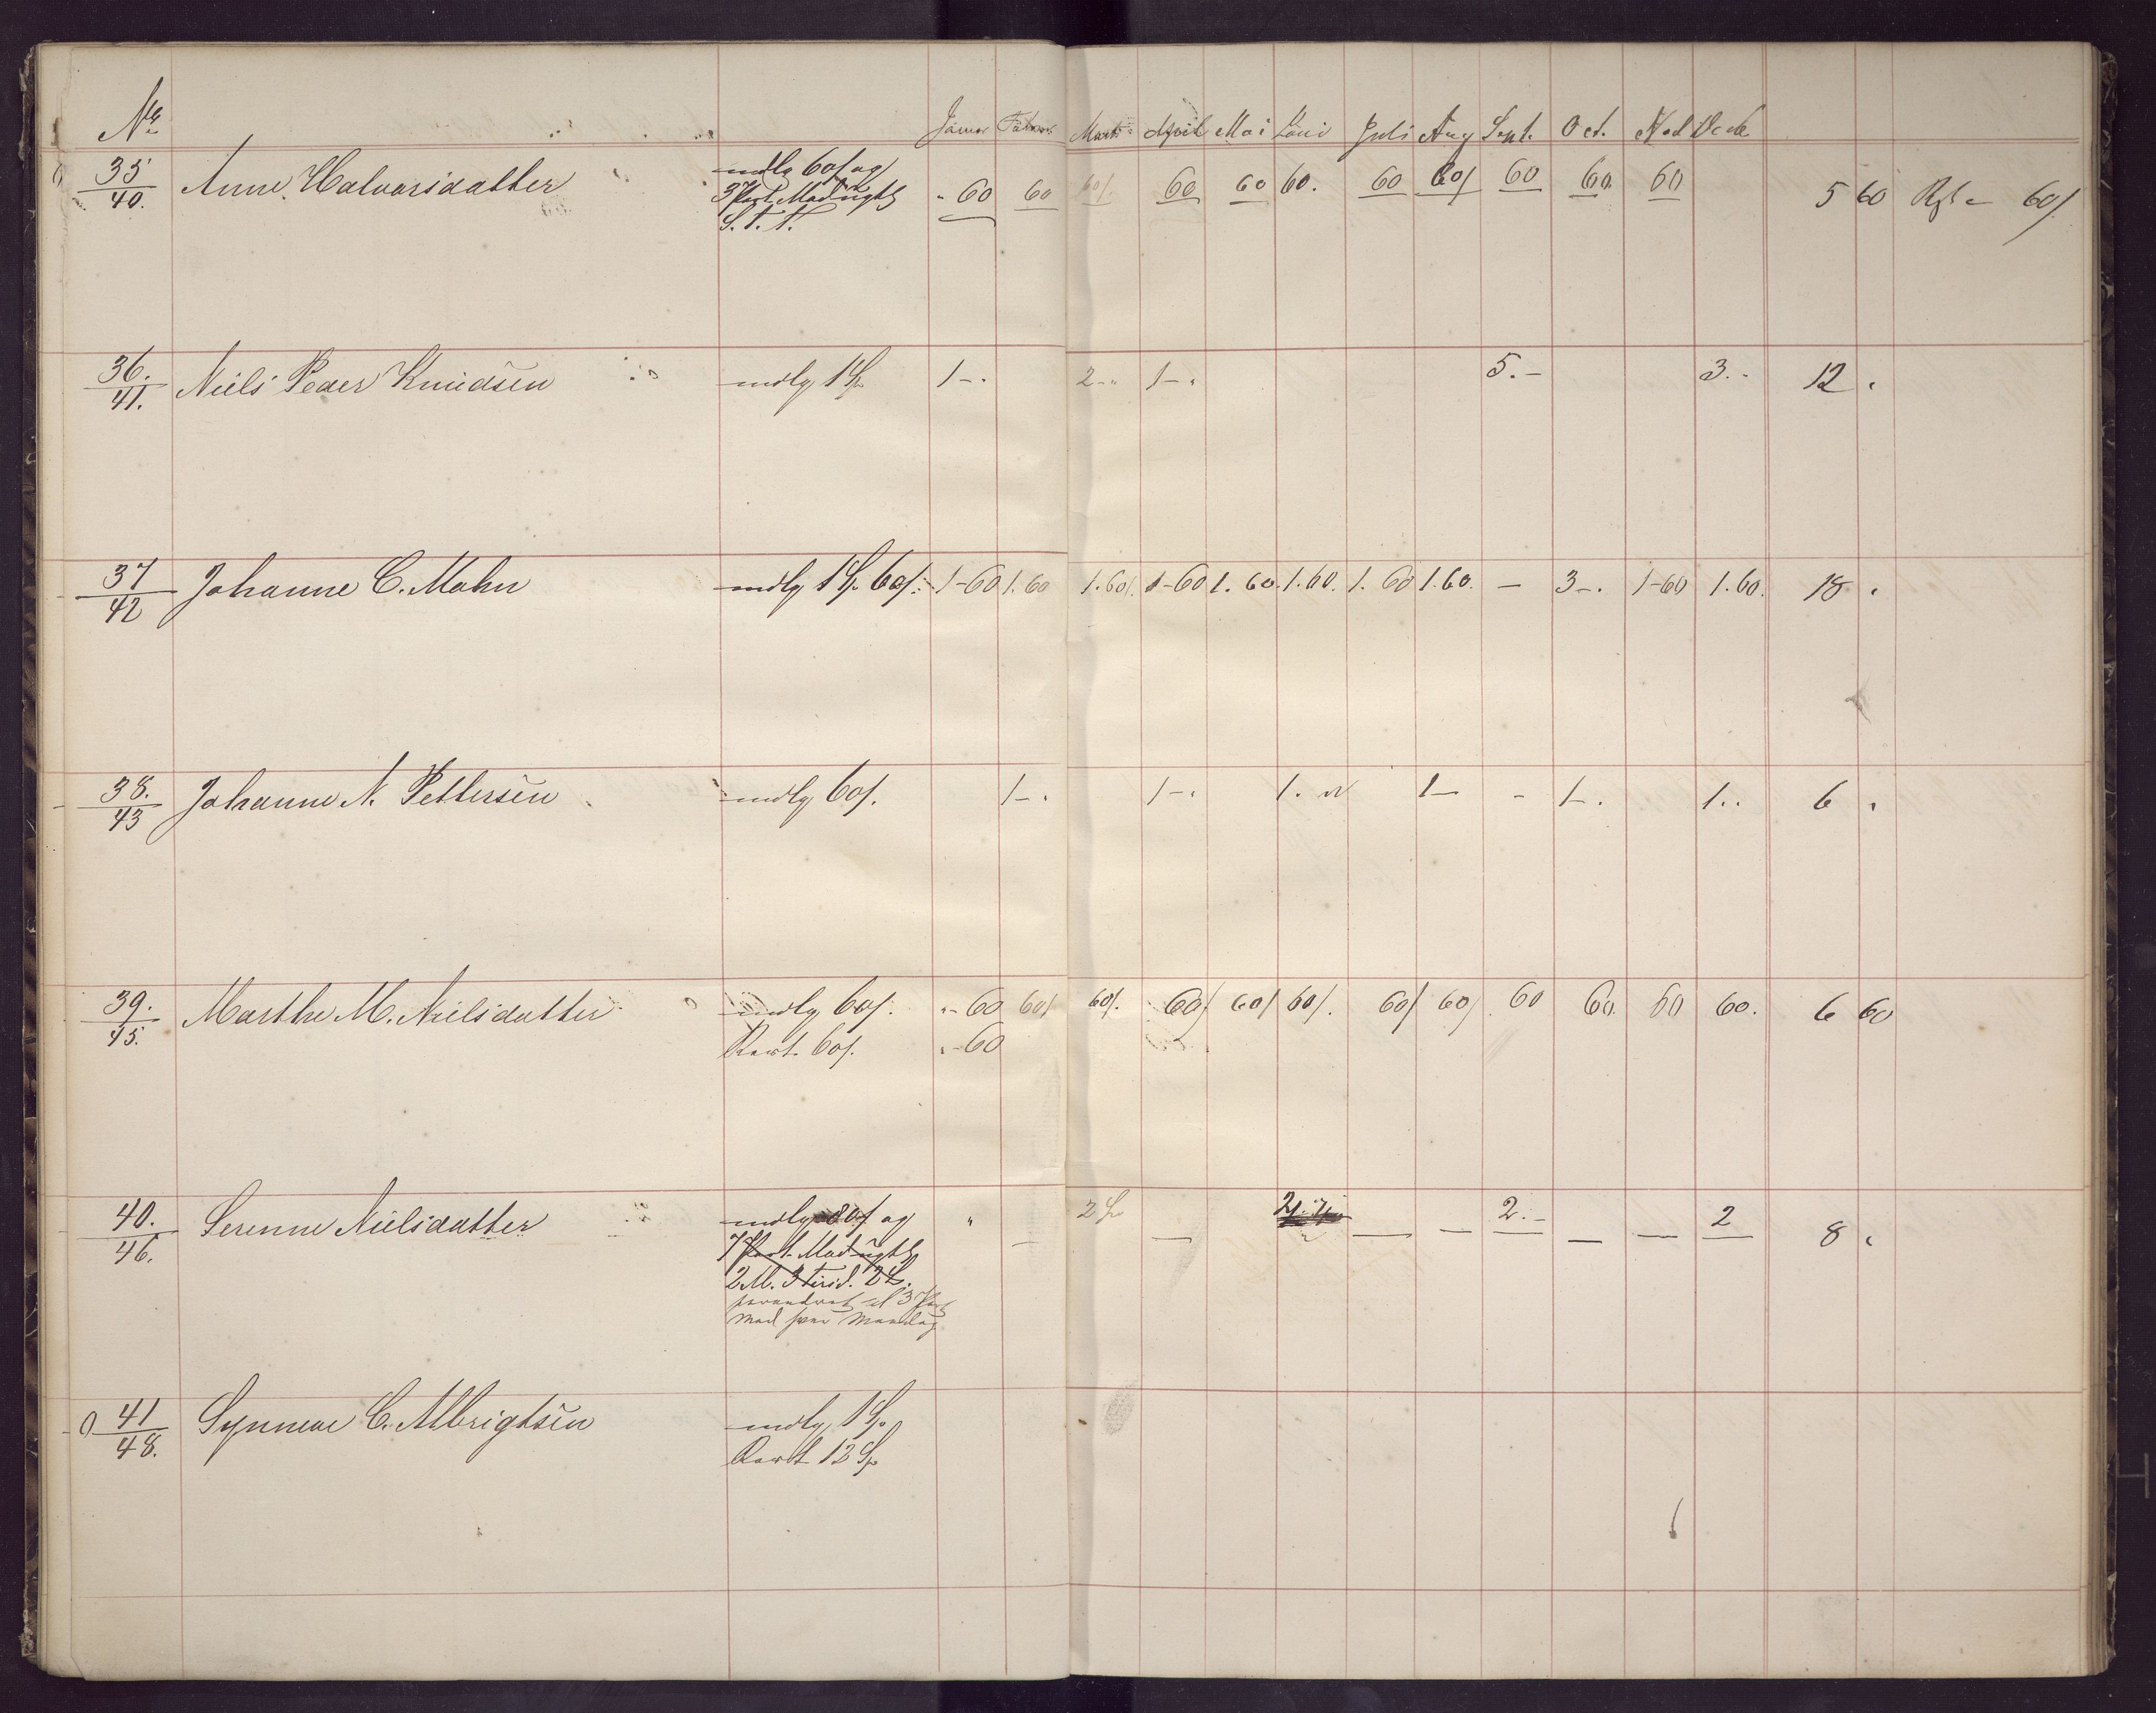 No Januar Februar Marts April Mai Juni Juli Aug Sept. Oct. Nov Decbr
35/40. Anne Halvorsdatter mdlg 60/ og - 60 60 60/. 60 60 60. 60 60/ 60 60 60 5 60 60/
3 Port. Mad ugtl
S. T. H.
36./41. Niels Peder Knudsen mdlg 1 Sp 1-. 2-" 1-. 5.- 3.- 12 .
37/42 Johanne C. Mahn mdlg 1 Sp 60/. 1-60 1.60 1.60/. 1-60 1.60. 1.60. 1.60 1.60. - 3-. 1-60 1.60. 18 .
38./43 Johanne N. Pettersen mdlg 60/. 1-. 1-. 1. " 1- - 1-. 1.. 6 .
39./45. Marthe M. Nielsdatter mdlg 60/. "-60 60/. 60/. 60/ 60/ 60/. 60/ 60/. 60 60. 60 60. 6 60
Aarl. 60/. "-60
40./46. Serenne Nielsdatter mdlg 80/ og " - 2 Sp - - - 2.- - - 2 8 .
7 Port. Mad ugtl
2 M. 3 2 L.
forandret til 3 Port
Mad hver Mandag
41/48. Synneve C. Albrigtsen mdlg 1 Sp
Aarl 12 Sp